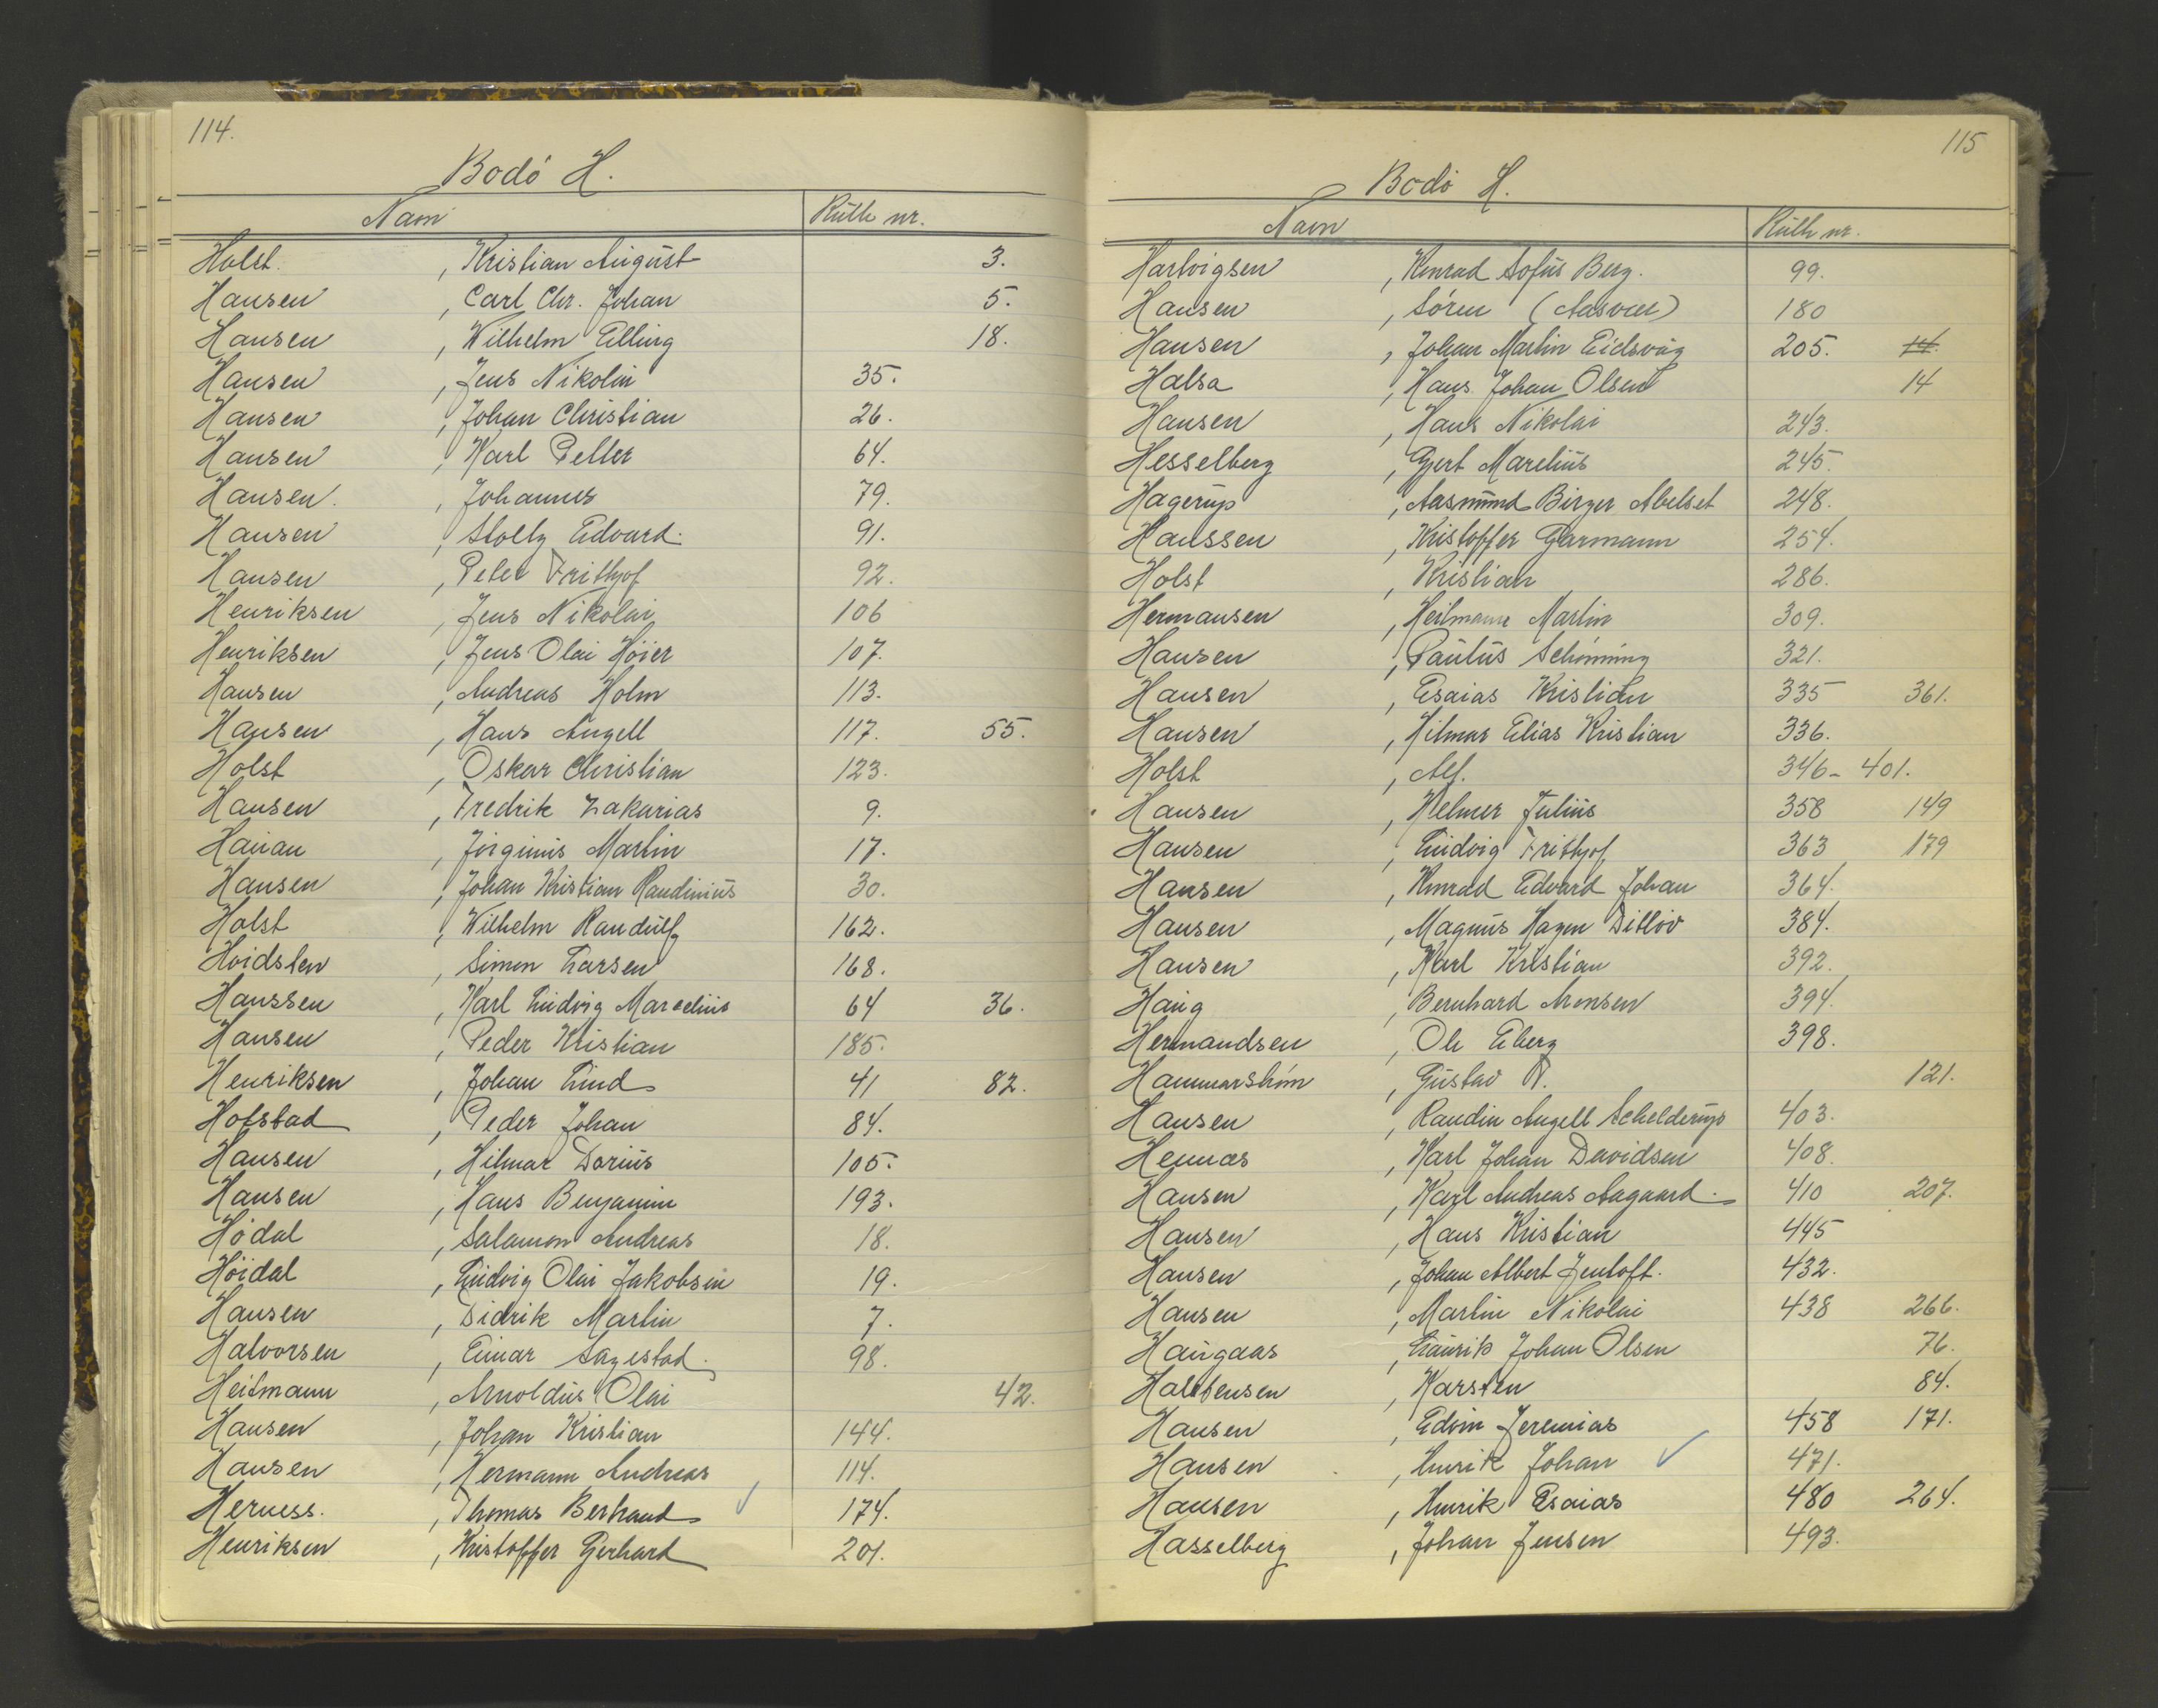 114.
Bodó H.
Navn Rulle nr.
Holst. , Kristian August 3.
Hansen , Carl Chr. Johan 5.
Hansen , Wilhelm Elling 18.
Hansen , Jens Nikolai 35.
Hansen , Johan Christian 26.
Hansen , Karl Petter 64.
Hansen. , Johannes 79.
Hansen , Stoltz Edvard. 91.
Hansen , Peter Frithjof 92.
Henriksen , Jens Nikolai 106
Henriksen , Jens Olai Höier 107.
Hansen , Andreas Holm 113.
Hansen , Hans Angell 117. 55.
Holst , Oskar Christian 123.
Hansen , Fredrik Zakarias 9.
Hauan , Jörginus Martin 17.
Hansen , Johan Kristian Raudinius 30.
Holst , Wilhelm Randulf 162.
Hvidsten , Simon Larsen 168.
Hanssen , Karl Ludvig Marcelius 64 36.
Hansen , Peder Kristian 185.
Henriksen , Johan Lind 41 82.
Hofstad , Peder Johan 84.
Hansen , Hilmar Darius 105.
Hansen , Hans Benjamin 193.
Hödal , Salamon Andreas 18.
Höidal , Ludvig Olai Jakobsen 19.
Hansen , Didrik Martin 7.
Halvorsen , Einar Sagestad. 98.
Heitmann , Arnoldus Olai 42.
Hansen , Johan Kristian 144.
Hansen , Hermann Andreas 114.
Herness. , Thomas Berhand ✓ 174.
Henriksen , Kristoffer Gerhard 201.
115
Bodó H.
Navn Rulle nr.
Hartvigsen , Konrad Sofus Berg. 99.
Hansen , Sören (Aasvær) 180
Hansen , Johan Martin Eidsvåg 205. 14.
Halsa , Hans Johan Olsen 14
Hansen , Hans Nikolai 243.
Hesselberg , Gjert Marelius 245.
Hagerup , Aasmund Birger Abelset 248.
Hanssen , Kristoffer Garmann 254.
Holst , Kristian 286.
Hermansen , Heitmann Martin 309.
Hansen , Paulus Schönning 321.
Hansen , Esaias Kristian 335 361.
Hansen , Hilmar Elias Kristian 336.
Holst , Alf. 346 - 401.
Hansen , Helmer Julius 358 149
Hansen , Ludvig Frithjof 363 179
Hansen , Konrad Edvard Johan 364.
Hansen , Magnus Hagen Ditlöv 384.
Hansen , Karl Kristian 392.
Haug , Bernhard Monsen 394.
Hermandsen , Ole Eberg 398.
Hammarström , Gustav A. 121.
Hansen , Raudin Angell Schelderup 403.
Hennæs , Karl Johan Davidsen 408.
Hansen , Karl Andreas Aagaard. 410 207.
Hansen , Hans Kristian 445
Hansen , Johan Albert Jentoft. 432.
Hansen , Martin Nikolai 438 266.
Haugaas , Laurik Johan Olsen 76.
Halstensen , Karsten 84.
Hansen , Edvin Jeremias 458 171.
Hansen , Henrik Johan ✓ 471.
Hansen , Henrik Esaias 480 264.
Hasselberg , Johan Jensen 493.